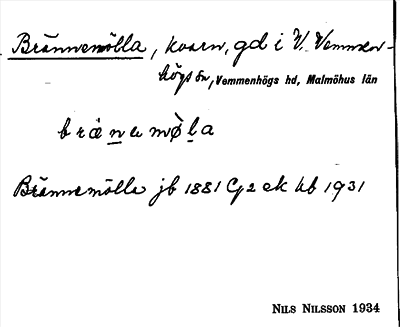 Brännemölla, kvarn, gd i V. Vemmen-
högs sn, Vemmenhögs hd, Malmöhus län
Brännemölla jb 1881 G2 ek kb 1931
NILS NILSSON 1934